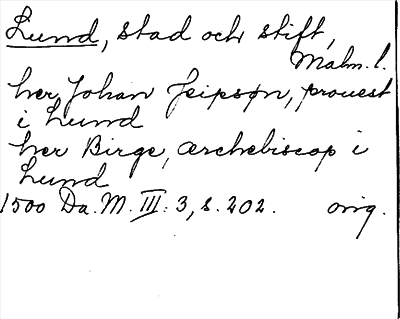 Lund, stad och stift,
Malm. l.
her Johan Jeipsøn, prouest
i Lund
her Birge, ærchebiscop i
Lund
1500 Da. M. III: 3, s. 202. orig.